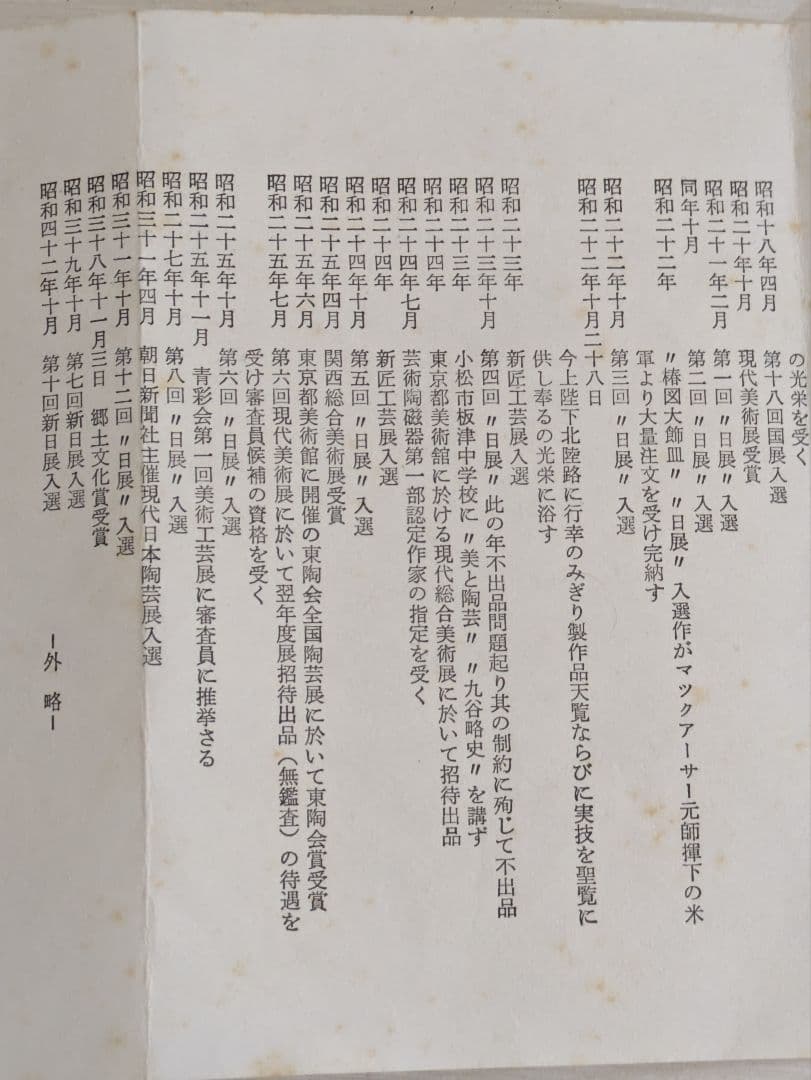 の光栄を受く
昭和十八年四月　第十八回国展入選
昭和二十年十月　現代美術展受賞
昭和二十一年二月　第一回〃日展〃入選
同年十月　第二回〃日展〃入選
昭和二十二年　〃椿図大飾皿〃〃日展〃入選作がマツクアーサー元師揮下の米
軍より大量注文を受け完納す
昭和二十二年十月　第三回〃日展〃入選
昭和二十二年十月二十八日
今上陛下北陸路に行幸のみぎり製作品天覧ならびに実技を聖覧に
供し奉るの光栄に浴す
昭和二十三年　新匠工芸展入選
昭和二十三年十月　第四回〃日展〃此の年不出品問題起り其の制約に殉じて不出品
昭和二十三年　小松市板津中学校に〃美と陶芸〃〃九谷略史〃を講ず
昭和二十四年　東京都美術館に於ける現代総合美術展に於いて招待出品
昭和二十四年七月　芸術陶磁器第一部認定作家の指定を受く
昭和二十四年　新匠工芸展入選
昭和二十四年十月　第五回〃日展〃入選
昭和二十五年四月　関西総合美術展受賞
昭和二十五年六月　東京都美術館に開催の東陶会全国陶芸展に於いて東陶会賞受賞
昭和二十五年七月　第六回現代美術展に於いて翌年度展招待出品（無鑑査）の待遇を
受け審査員候補の資格を受く
昭和二十五年十月　第六回〃日展〃入選
昭和二十五年十一月　青彩会第一回美術工芸展に審査員に推挙さる
昭和二十七年十月　第八回〃日展〃入選
昭和三十一年四月　朝日新聞社主催現代日本陶芸展入選
昭和三十一年十月　第十二回〃日展〃入選
昭和三十八年十一月三日　郷土文化賞受賞
昭和三十九年十月　第七回新日展入選
昭和四十二年十月　第十回新日展入選
ー外　略ー